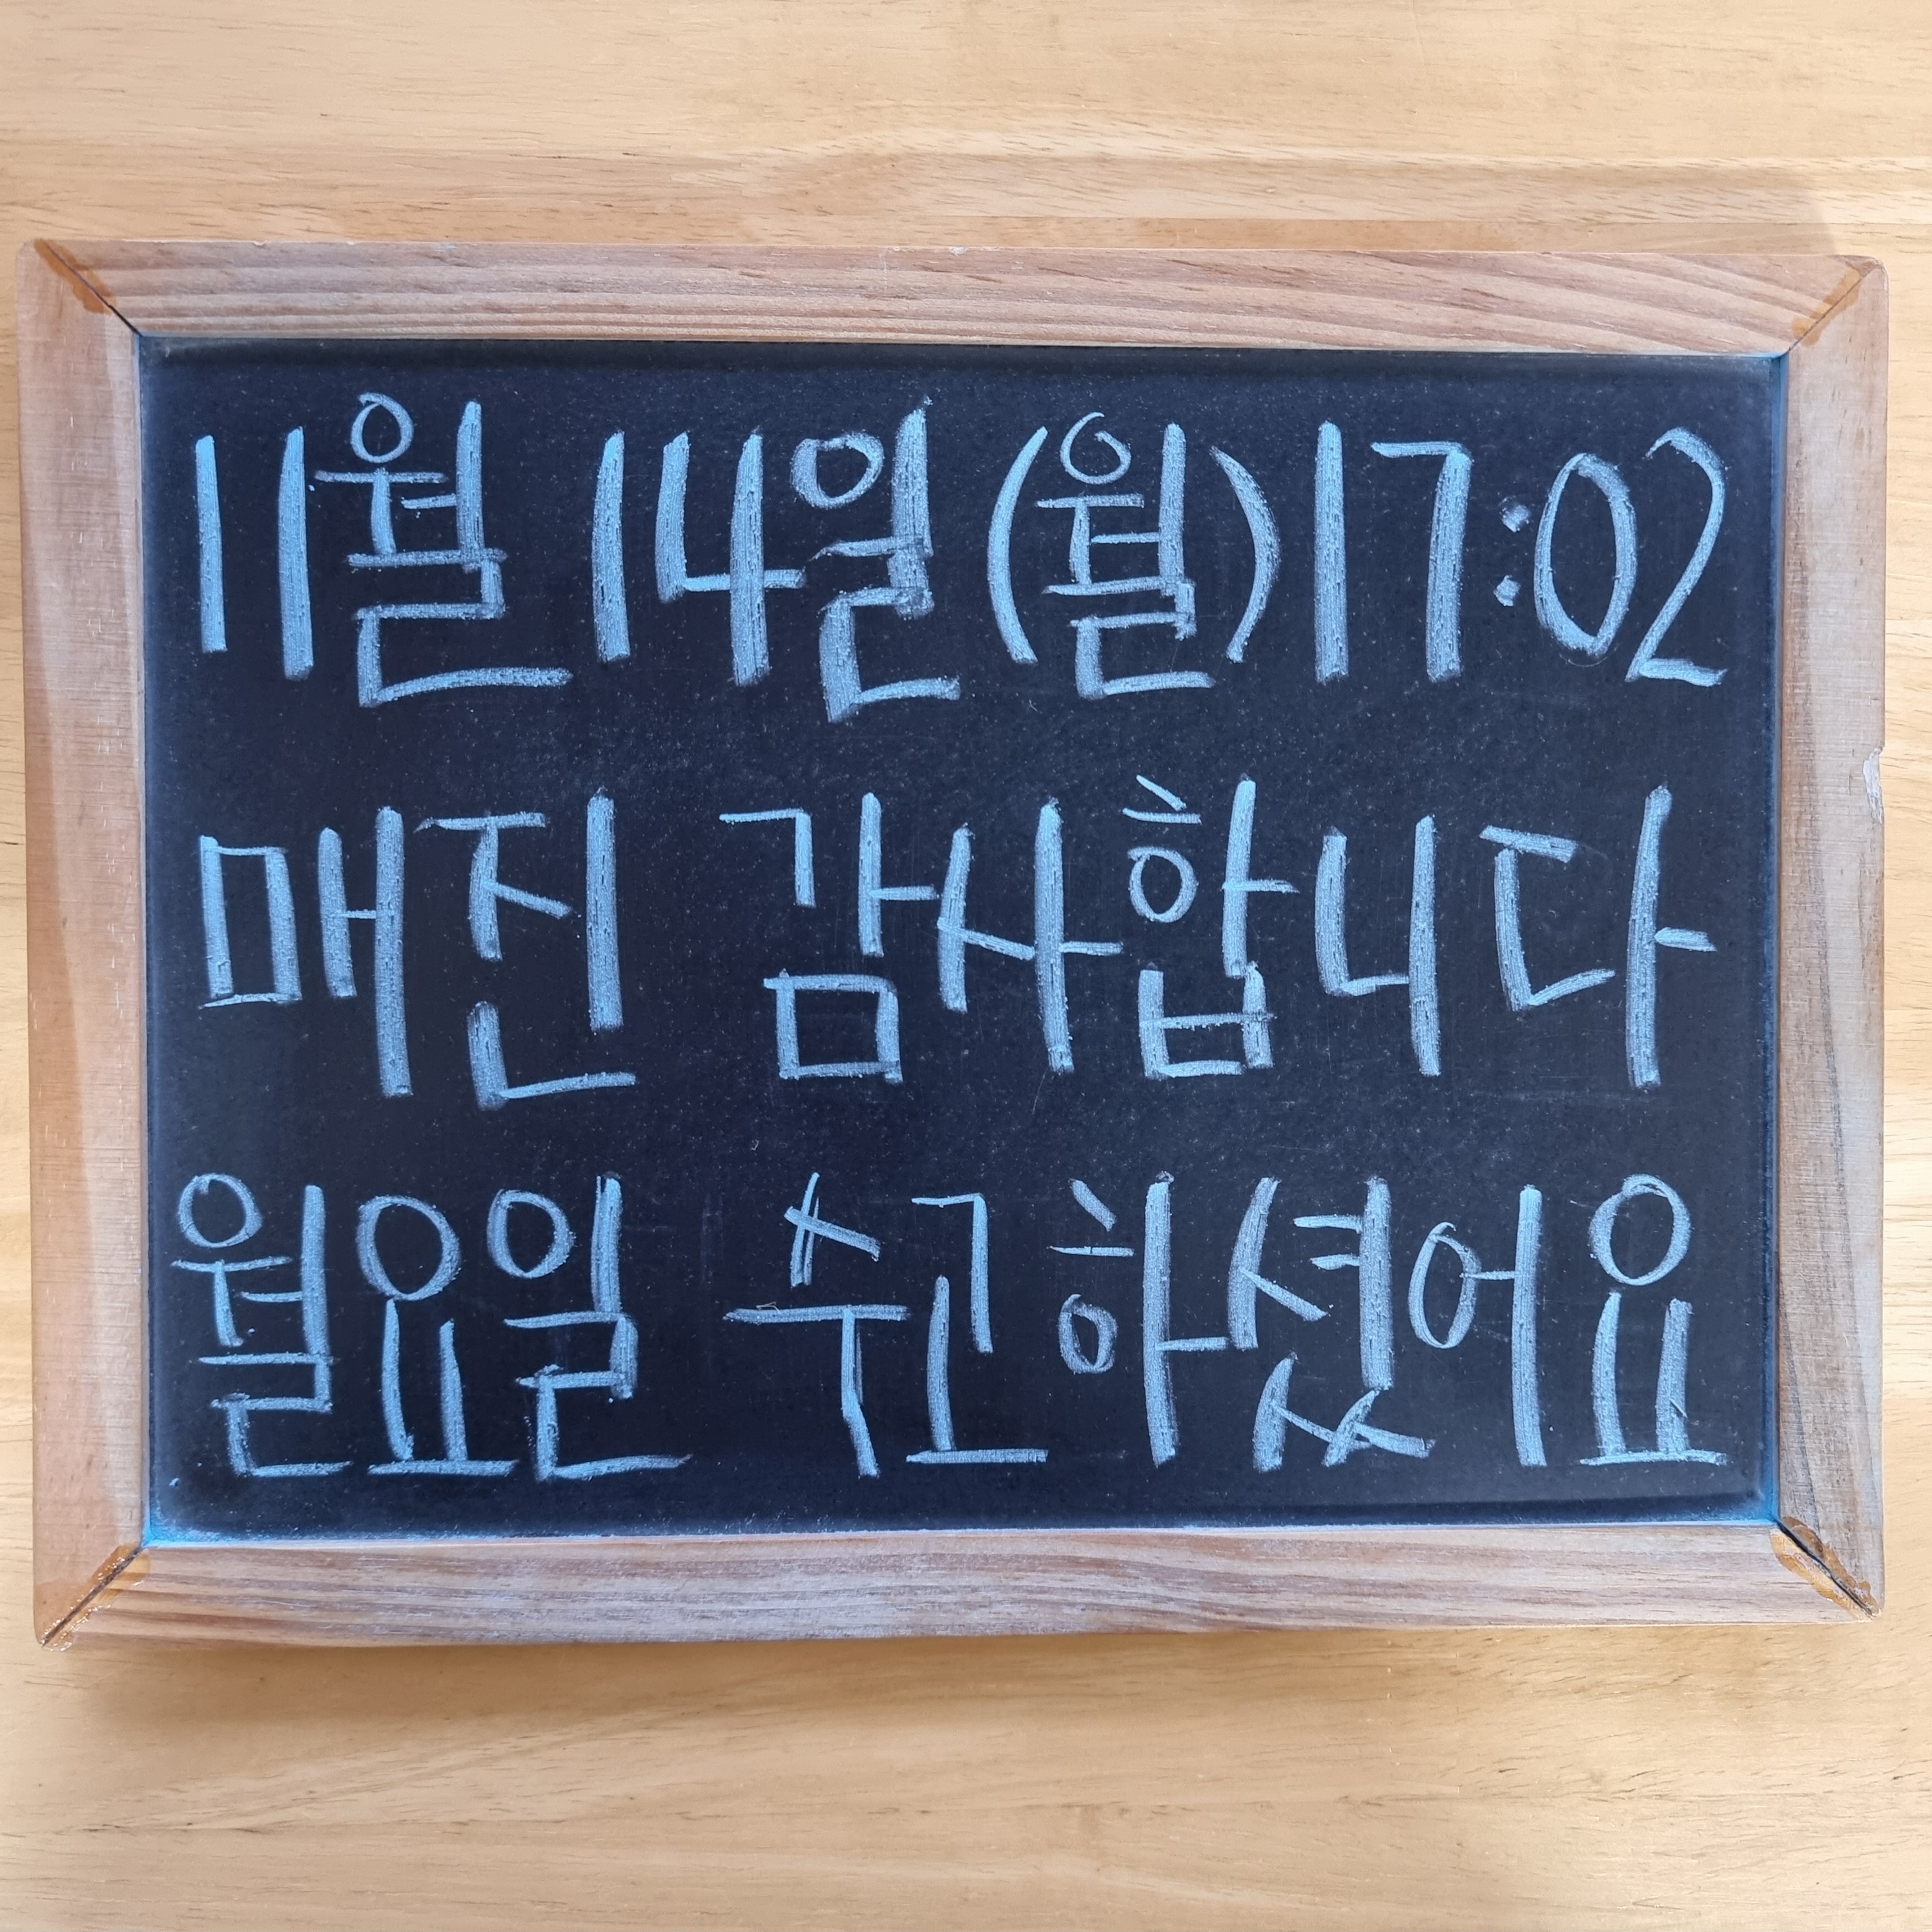 11월 14일(월)17:02
매진 감사합니다
월요일 수고하셨어요